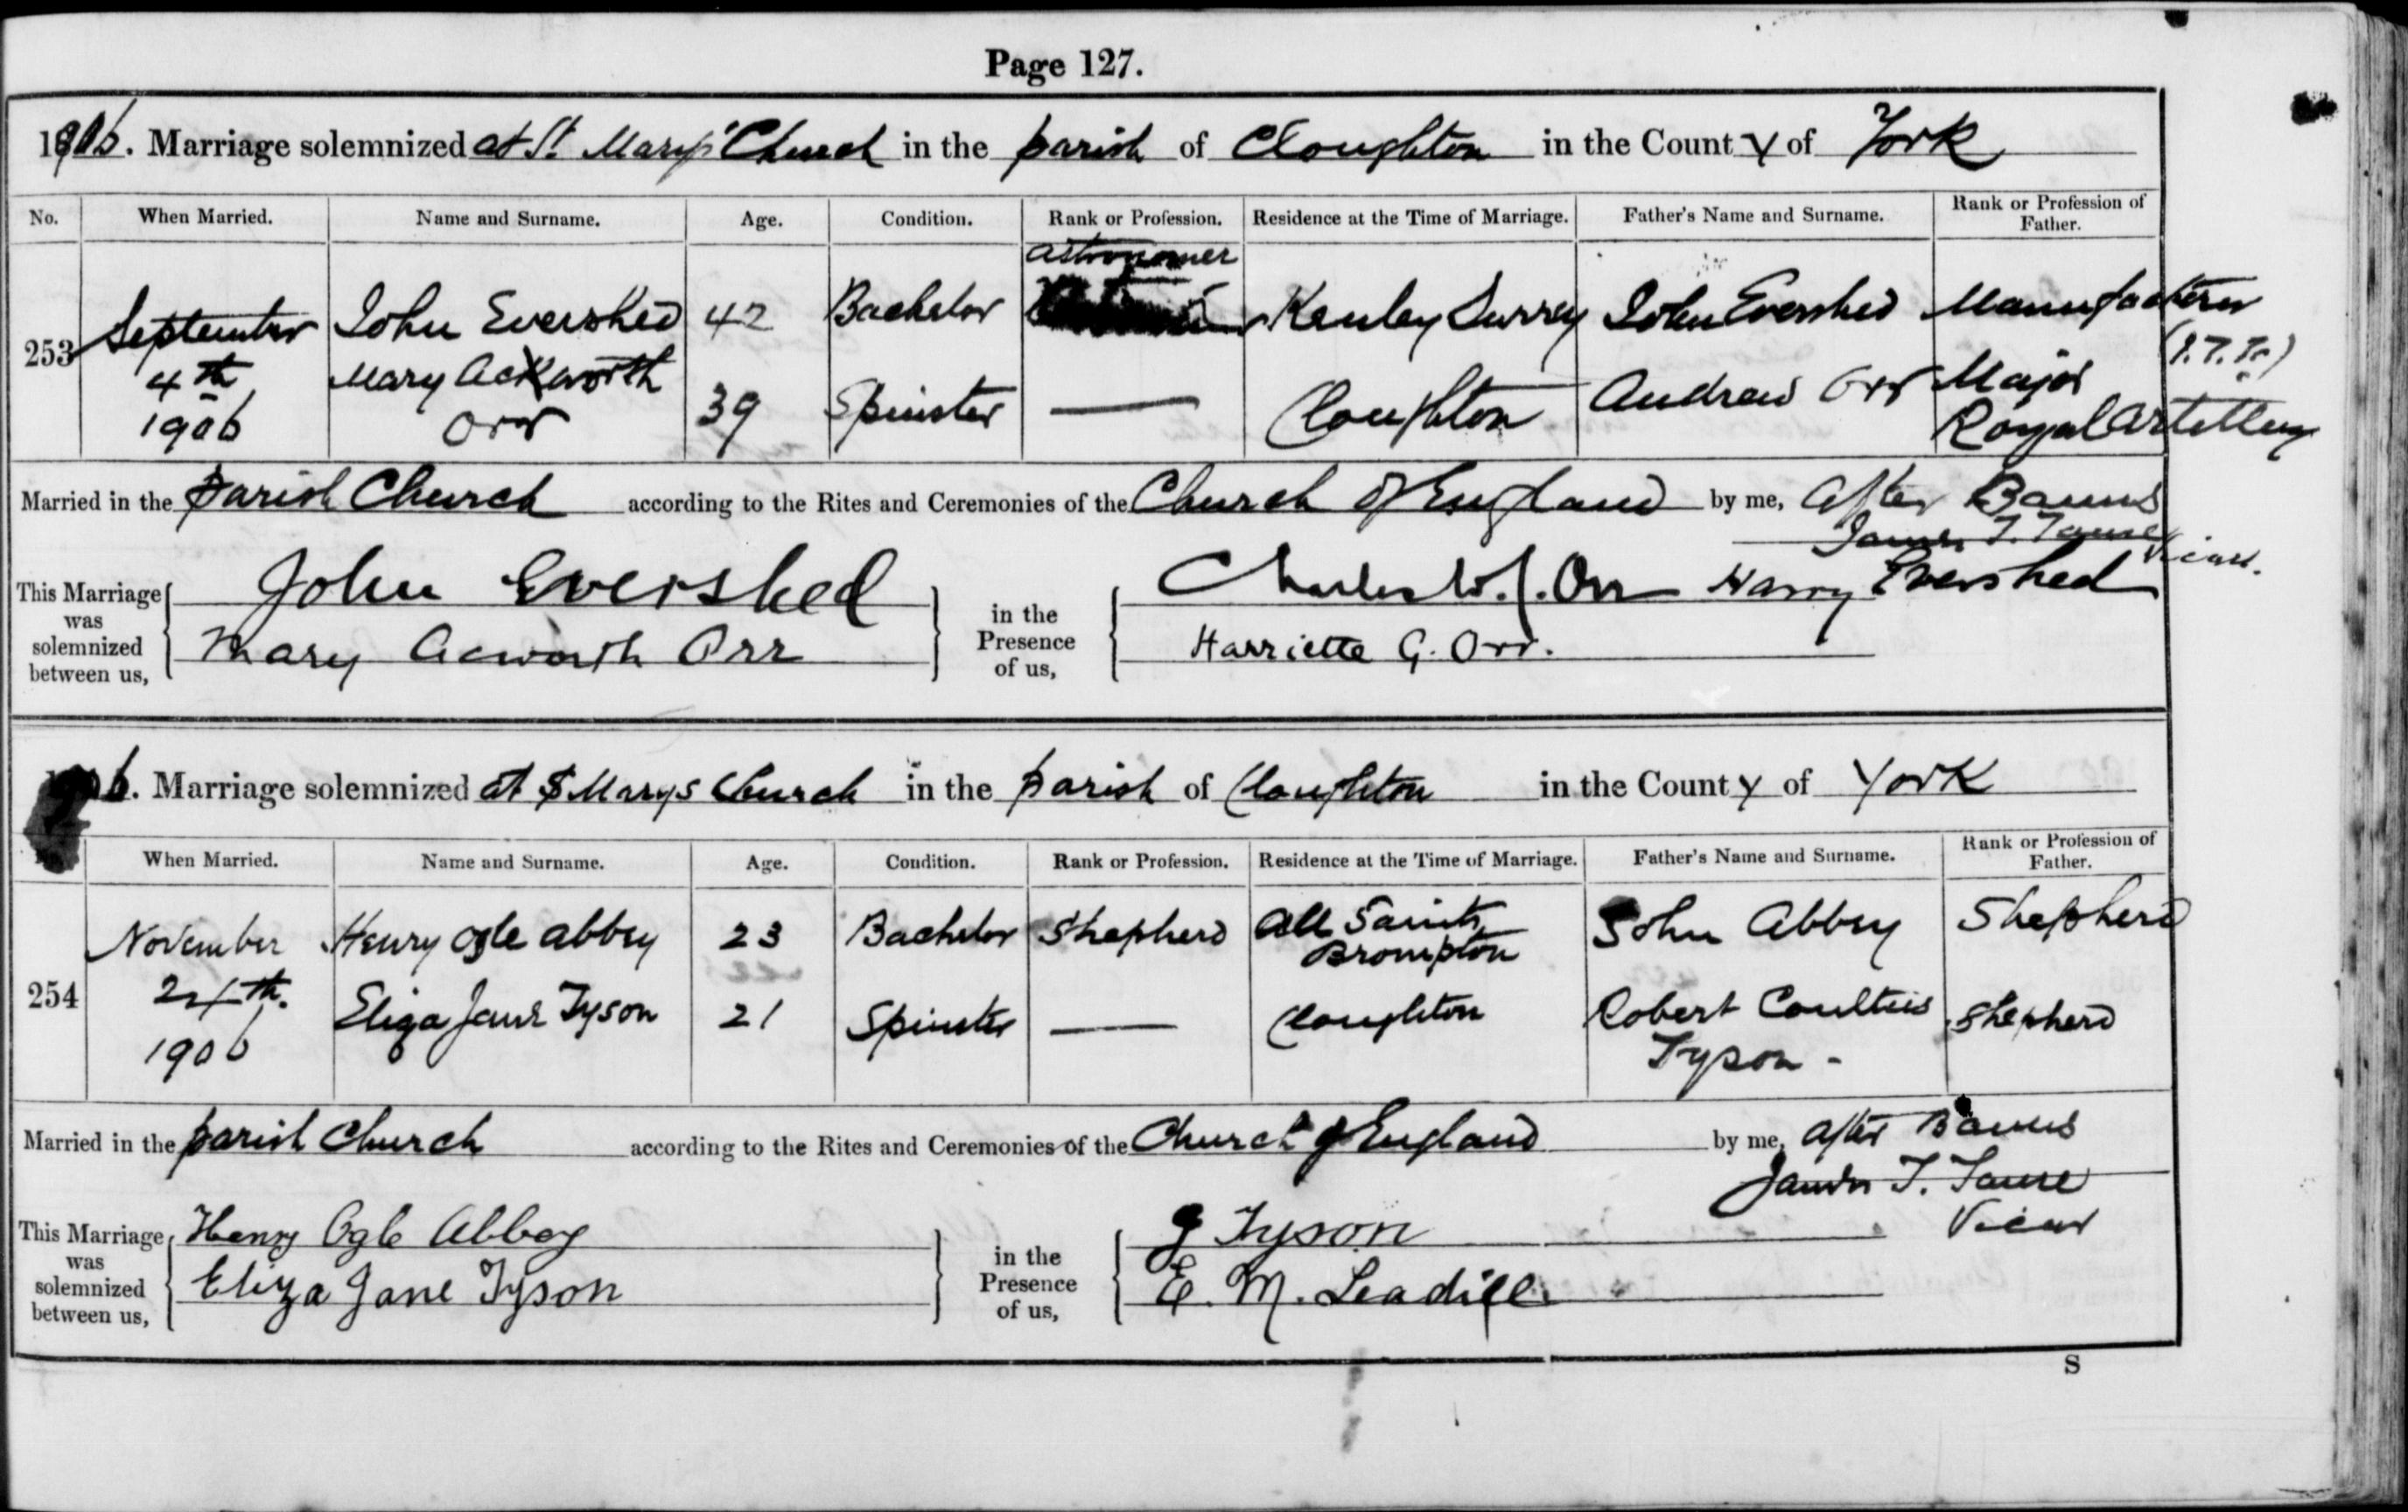 Page 127.
1906. Marriage solemnized at St. Mary's Church in the parish of Cloughton in the County of York
No. When Married. Name and Surname. Age. Condition. Rank or Profession. Residence at the Time of Marriage. Father's Name and Surname. Rank or Profession of Father.
253 September 4th 1906 John Evershed 42 Bachelor astronomer Kenley Surrey John Evershed Manufacturer
(J.T.T.)
Mary Ackworth Orr 39 Spinster — Cloughton Andrew Orr Major Royal Artillery
Married in the parish Church according to the Rites and Ceremonies of the Church of England by me, After Banns
James T. Vicar.
This Marriage was solemnized between us, John Evershed in the Presence of us, Charles W. J. Orr Harry Evershed
Mary Acworth Orr Harriette G. Orr.
1906. Marriage solemnized at St Marys Church in the parish of Cloughton in the County of York
When Married. Name and Surname. Age. Condition. Rank or Profession. Residence at the Time of Marriage. Father's Name and Surname. Rank or Profession of Father.
254 November 24th. 1906 Henry Ogle Abbey 23 Bachelor Shepherd All Saints Brompton John Abbey Shepherd
Eliza Jane Tyson 21 Spinster — Cloughton Robert Tyson - Shepherd
Married in the parish Church according to the Rites and Ceremonies of the Church of England by me, After Banns
James T. Vicar
This Marriage was solemnized between us, Henry Ogle Abbey in the Presence of us, J Tyson
Eliza Jane Tyson E. M. Leadill
S